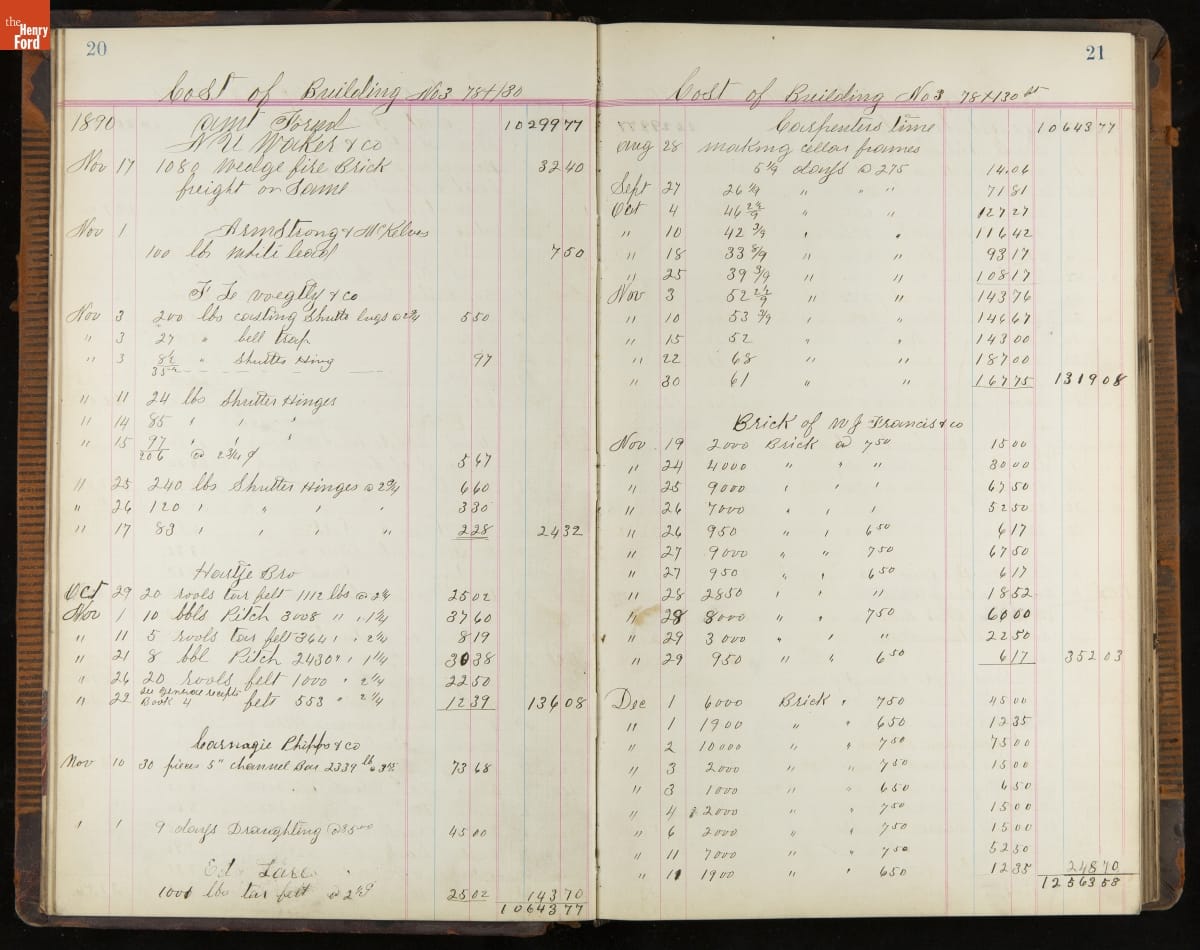 the
Henry
Ford
20
Cost of Building No 3 78 x 130
1890 Amt Forwd 10299 77
& co
Nov 17 1080 Wedge fire Brick 32 40
freight on Same
Nov 1 Armstrong & McKelvy
100 lbs White lead 7 50
& co
Nov 3 200 lbs casting Shutte lugs @ 2 3/4 5 50
" 3 27 " bell trap
" 3 8 1/2 " Shutter Hing 97
35 1/2
" 11 24 lbs Shutter Hinges
" 14 85 " " "
" 15 97 " " "
206 @ 2 3/4 ¢ 5 67
" 25 240 lbs Shutter Hinges @ 2 3/4 6 60
" 26 120 " " " " 3 30
" 17 83 " " " " 2 28 24 32
Hartje Bro
Oct 29 20 rools tar felt 1112 lbs @ 2 1/4 25 02
Nov 1 10 bbls Pitch 3008 " " 1 1/4 37 60
" 11 5 rools tar felt 364 " " 2 1/4 8 19
" 21 8 bbl Pitch 2430 " " 1 1/4 30 38
" 26 20 rools felt 1000 " 2 1/4 22 50
" 22 see general receipts Book 4 felt 553 " 2 1/4 12 39 136 08
Carnagie Phipps & co
Nov 10 30 pieces 5" channel Bar 2339 lb @ 73 68
" 1 9 days Draughting @ 5 00 45 00
Ed
1000 lbs tar felt @ 25 02 143 70
10643 77
21
Cost of Building No 3 78 x 130 ft
Carpenters time 10643 77
Aug 28 making cellar frames
5 1/9 days @ 275 14 06
Sept 27 26 1/9 " " " 71 81
Oct 4 46 " " 127 27
" 10 42 3/9 " " 116 42
" 18 33 8/9 " " 93 17
" 25 39 3/9 " " 108 17
Nov 3 52 " " 143 76
" 10 53 3/9 " " 146 67
" 15 52 " " 143 00
" 22 68 " " 187 00
" 30 61 " " 167 75 1319 08
Brick of W J Francis & co
Nov 19 2000 Brick @ 7 50 15 00
" 24 4000 " " " 30 00
" 25 9000 " " " 67 50
" 26 7000 " " " 52 50
" 26 950 " " 6 50 6 17
" 27 9000 " " 7 50 67 50
" 27 950 " " 6 50 6 17
" 28 2850 " " " 18 52
" 28 8000 " " 7 50 60 00
" 29 3000 " " " 22 50
" 29 950 " " 6 50 6 17 352 03
Dec 1 6000 Brick " 7 50 45 00
" 1 1900 " " 6 50 12 35
" 2 10000 " " 7 50 75 00
" 3 2000 " " 7 50 15 00
" 3 1000 " " 6 50 6 50
" 4 2000 " " 7 50 15 00
" 6 2000 " " 7 50 15 00
" 11 7000 " " 7 50 52 50
" 11 1900 " " 6 50 12 35 248 70
12563 58